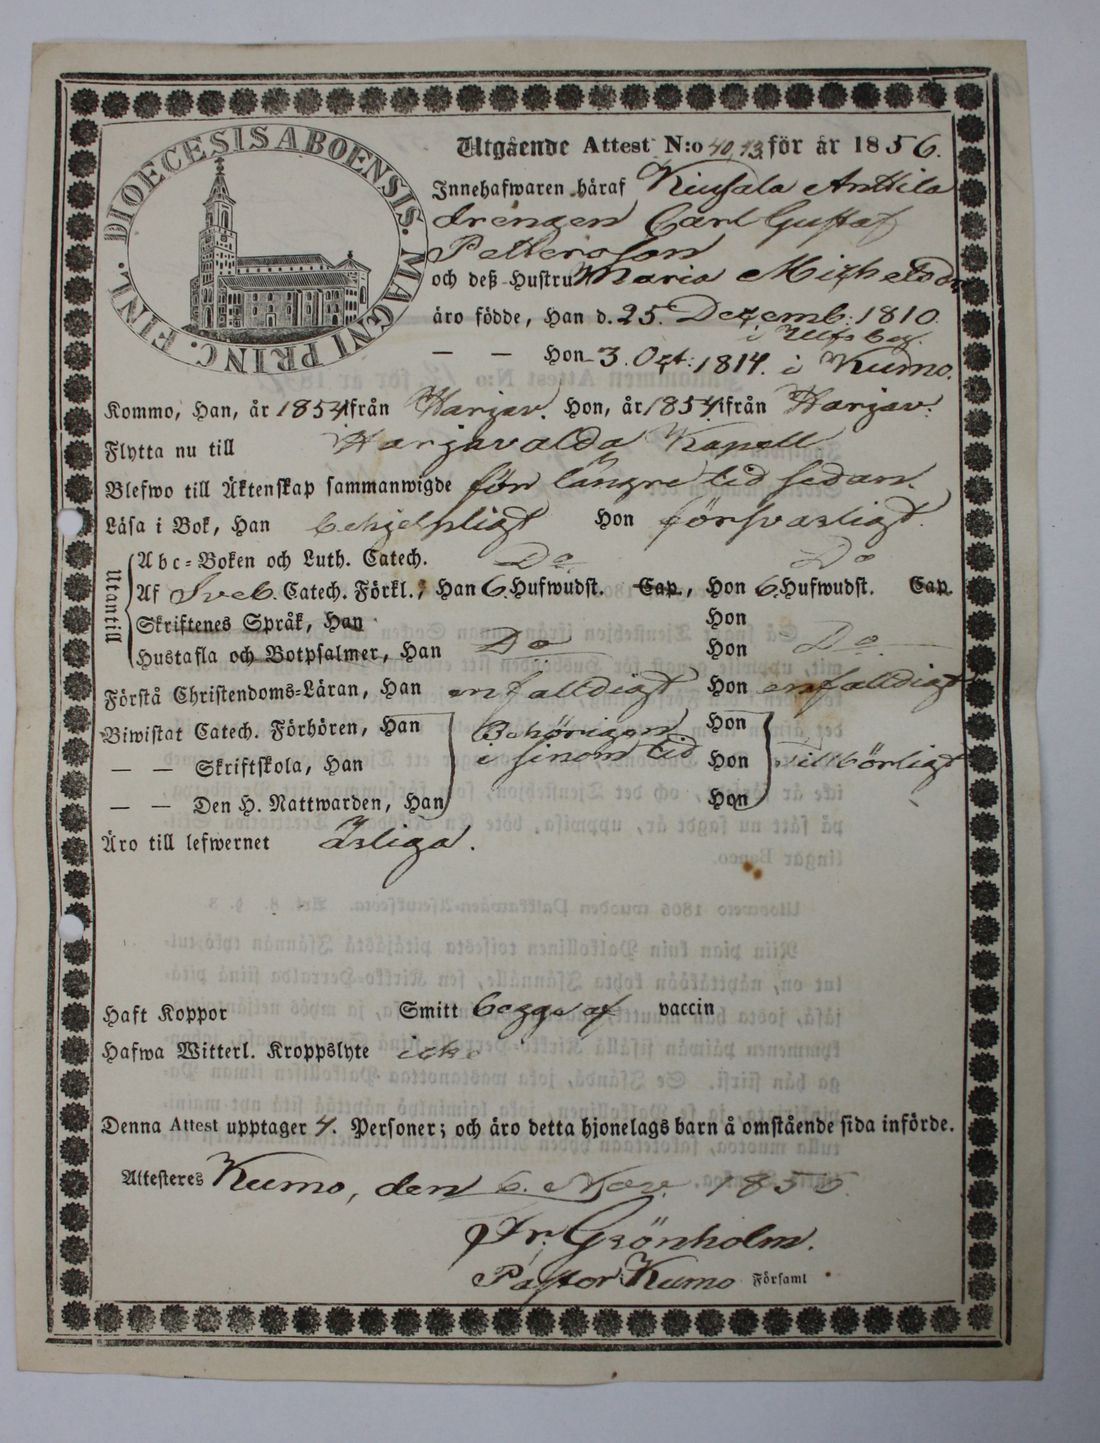 DIOECESIS ABOENSIS. MAGNI PRINC. FINL.
Utgående Attest N:o 40,43, för år 1856.
Innehafwaren häraf Kiusala Anttila
Drengen Carl Gustaf
Pettersson
och deß Hustru Maria Michelsdr
äro födde, Han d. 25. Dezemb. 1810.
i Ulfsby.
— — Hon 3. Oct: 1814. i Kumo.
Kommo, Han, år 1854 ifrån Harjav. Hon, år 1854 ifrån Harjav.
Flytta nu till Harjavalda Kapell
Blefwo till Äktenskap sammanwigde för längre tid sedan.
Läsa i Bok, Han behjelpligt Hon försvarligt.
Utantill
Abc-Boken och Luth. Catech. Do Do
Af Sveb. Catech. Förkl., Han 6. Hufwudst. Cap., Hon 6. Hufwudst. Cap.
Skriftenes Språk, Han Hon
Hustafla och Botpsalmer, Han Do Hon Do
Förstå Christendoms-Läran, Han enfalldigt Hon enfalldigt
Biwistat Catech. Förhören, Han Behörigen Hon
— — Skriftskola, Han i sinom tid Hon tillbörligt
— — Den H. Nattwarden, Han Hon
Äro till lefwernet ärliga.
Haft Koppor Smitt begge af vaccin
Hafwa Witterl. Kroppslyte icke
Denna Attest upptager 4. Personer; och äro detta hjonelags barn å omstående sida införde.
Attesteres Kumo, den 6. Nov. 1855.
Fr. Grönholm.
Pastor Kumo Församl